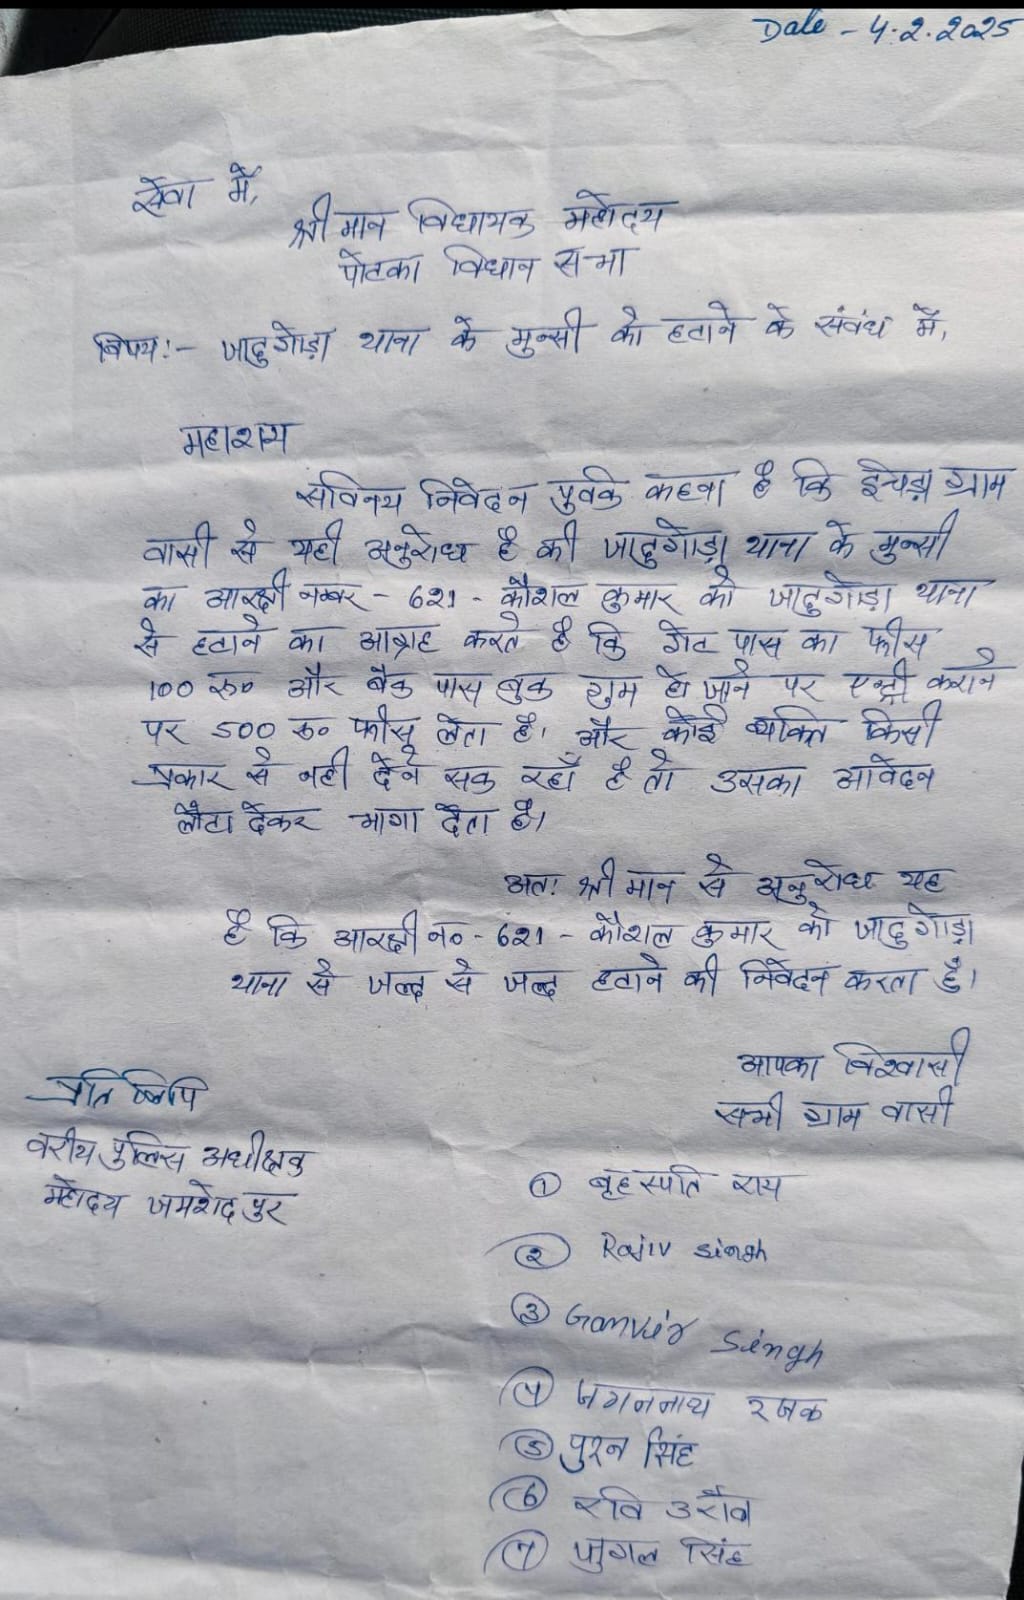 Date - 4.2.2025
सेवा में,
श्री मान विधायक महोदय
पोटका विधान सभा
विषय:- जादुगोड़ा थाना के मुन्सी को हटाने के संबंध में,
महाशय
सविनय निवेदन पुर्वक कहना है कि इचड़ा ग्राम
वासी से यही अनुरोध है की जादुगोड़ा थाना के मुन्सी
का आरक्षी नम्बर - 621 - कौशल कुमार को जादुगोड़ा थाना
से हटाने का आग्रह करते है कि गेट पास का फीस
100 रू० और बैंक पास बुक गुम हो जाने पर एन्ट्री कराने
पर 500 रू० फीस लेता है। और कोई व्यक्ति किसी
प्रकार से नही देने सक रहाँ है तो उसका आवेदन
लौटा देकर भागा देता है।
अतः श्री मान से अनुरोध यह
है कि आरक्षी न० - 621 - कौशल कुमार को जादुगोड़ा
थाना से जल्द से जल्द हटाने की निवेदन करता हुँ।
आपका विश्वासी
सभी ग्राम वासी
प्रति लिपि
वरीय पुलिस अधीक्षक
महोदय जमशेदपुर
① बृहस्पति राय
② Rajiv singh
③ Gamvir Singh
④ जगननाथ रजक
⑤ पुरन सिंह
⑥ रवि उराँव
⑦ जुगल सिंह